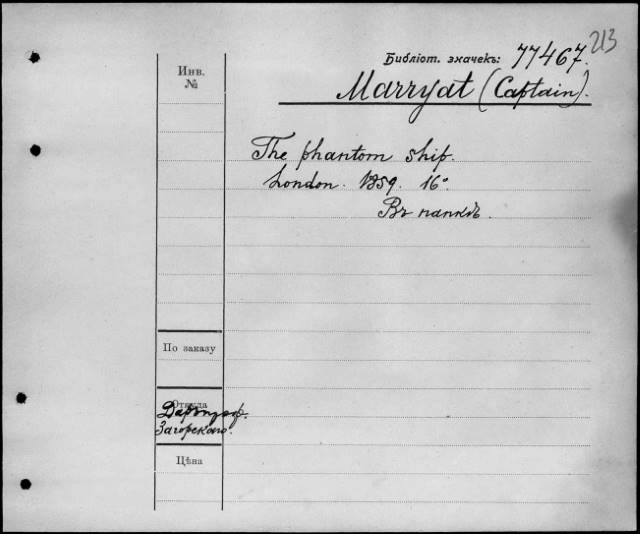 213
Библіот. значекъ: 77467.
Инв.
№
Marryat (Captain).
The phantom ship.
London. 1859. 16°
Въ папкѣ.
По заказу
Откуда
Даръ
Загорскаго.
Цѣна